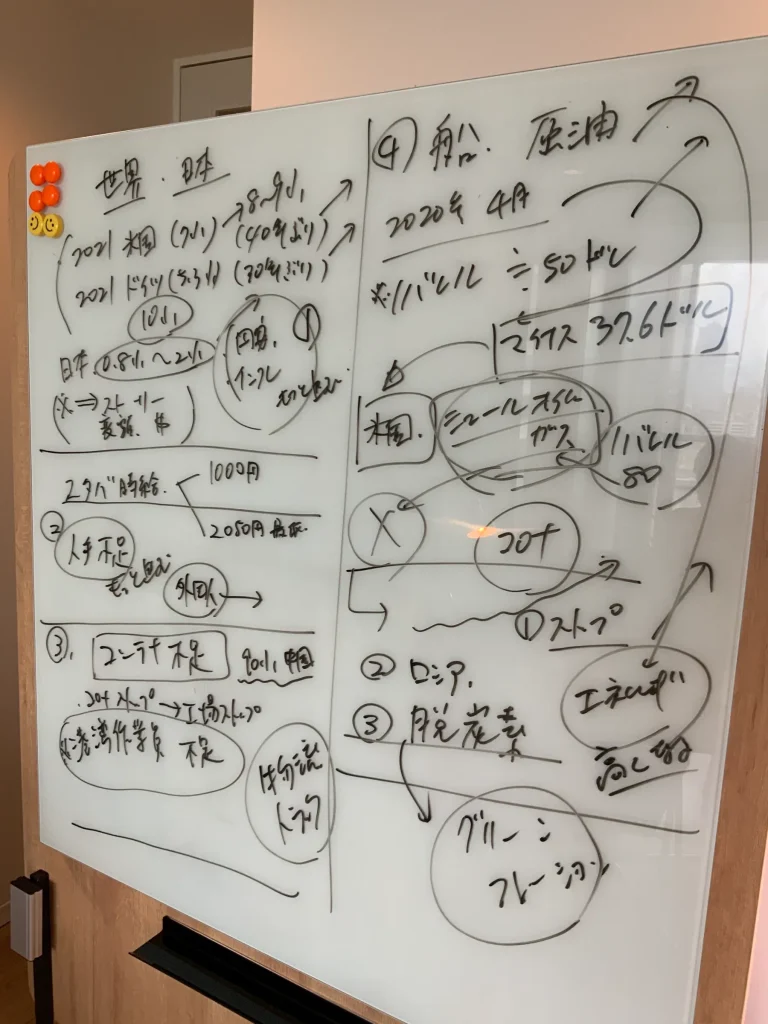 世界・日本
8〜9%
2021 米国 (7%) (40年ぶり)
2021 ドイツ (5.3%) (30年ぶり)
10%
日本 0.8%〜2%
円安, ①
インフレ
もっと
(X ⇒ スト
スタバ時給
1000円
2050円
② 人手不足
もっと
外国人 →
③. コンテナ不足 90% 中国
コロナストップ → 工場ストップ
港湾作業員 不足
物流
トラック
④ 船. 原油
2020年 4月
※1バレル ≒ 50ドル
マイナス 37.6ドル
米国. シェールオイル
ガス
1バレル
80
X
コロナ
① ストップ
② ロシア.
③ 脱炭素
エネルギー
高くなる
グリーン
フレーション